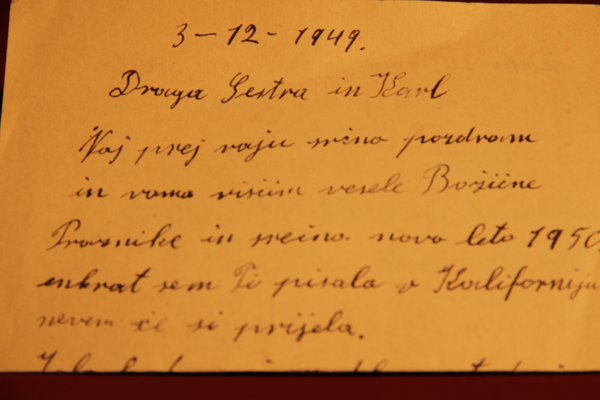 3-12-1949.
Draga Sestra in Karl
Naj prej vaju srčno pozdravm
in vama višim vesele Božične
Praznike in srečno novo leto 1950.
enkrat sem Ti pisala v Kalifornija
nevem če si prijela.